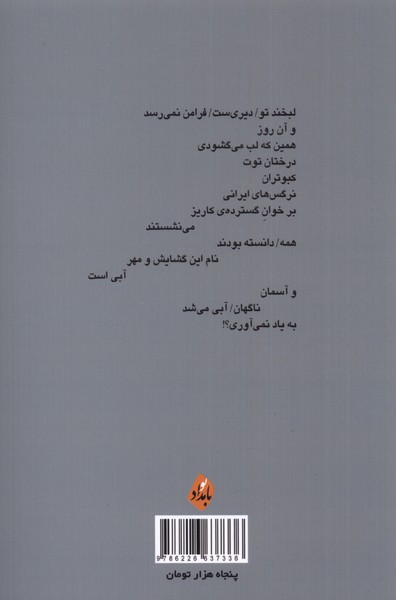 لبخند تو/ دیری‌ست/ فرامن نمی‌رسد
و آن روز
همین که لب می‌گشودی
درختان توت
کبوتران
نرگس‌های ایرانی
بر خوانِ گسترده‌ی کاریز
می‌نشستند
همه/ دانسته بودند
نام این گشایش و مهر
آبی است
و آسمان
ناگهان/ آبی می‌شد
به یاد نمی‌آوری؟!
بامداد نو
9 786226 637336
پنجاه هزار تومان